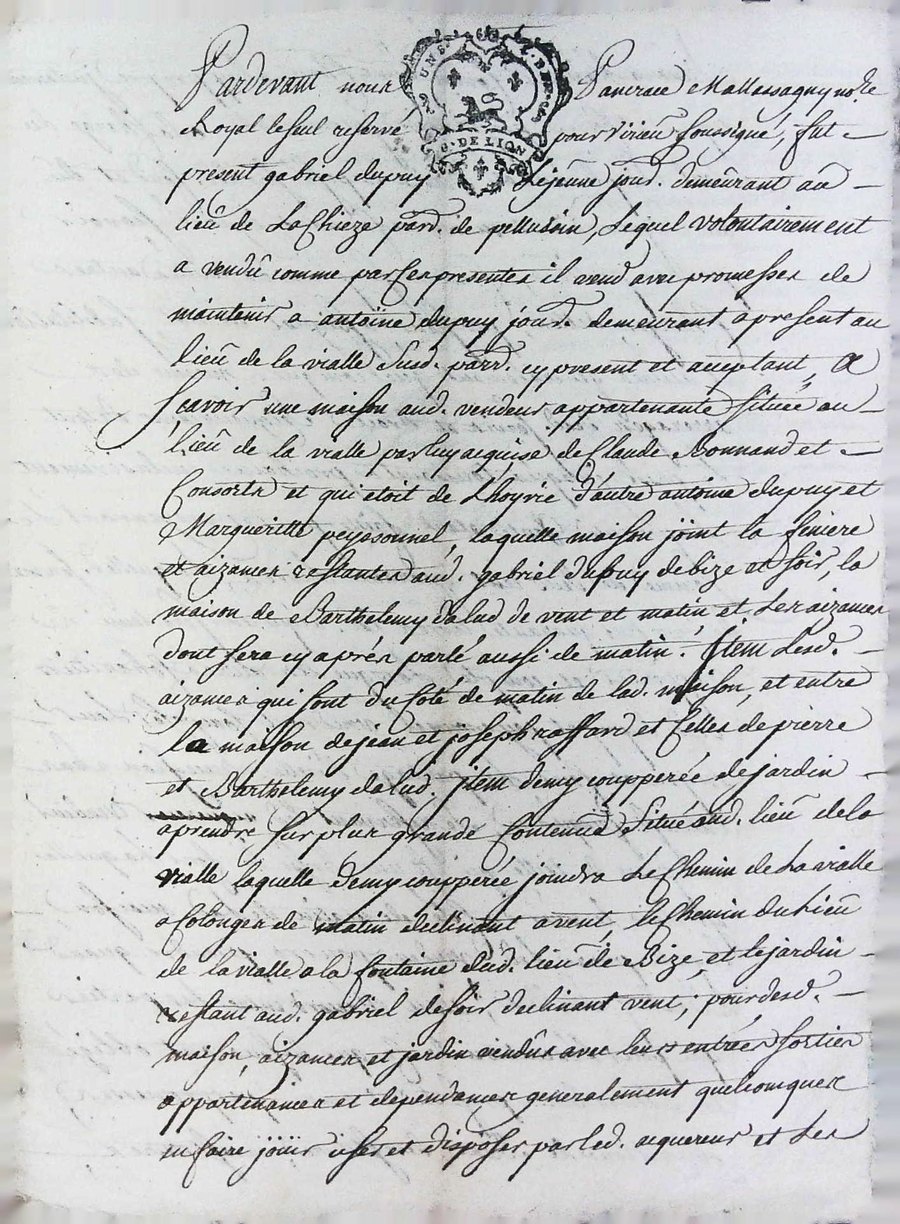 Pardevant nous Pancrace Mallassagny no.re
Royal le seul reservé pour virieu soussigné, fut
present gabriel dupuy Lejeune jour.d demeurant au
lieu de La Chieze par.d de pellussin, Lequel volontairement
a vendu comme par Ces presentes il vend avec promesses de
maintenir a antoine dupuy jour.d demeurant a present au
lieu de la vialle Susd. parr.d cy present et acceptant, A
Scavoir une maison aud. vendeur appartenante Situéé au
lieu de la vialle par luy acquise de Claude Bonnand et
Consorts et qui étoit de L'hoyrie d'autre antoine dupuy et
Margueritte peyssonnel, laquelle maison joint la feniere
et aizances restantes aud. gabriel dupuy de bize et soir, la
maison de Barthelemy dalud de vent et matin et Les aizances
dont sera cy aprés parlé aussi de matin. Jtem Lesd.
aizances qui sont du Coté de matin de lad. maison, et entre
la maison de jean et joseph raffard et Celles de pierre
et Barthelemy dalud. jtem demy coupperéé de jardin
aprendre sur plus grande Contenue Situé aud. lieu de la
vialle laquelle demy coupperéé joindra Le Chemin de La vialle
a Colonges de matin declinant a vent, le Chemin du Lieu
de la vialle a la fontaine dud. lieu de Bize, et le jardin
restant aud. gabriel de soir declinant vent; pour desd.
maison, aizances et jardin vendus avec leurs entréés sorties
appartenances et dependances generalement quelconques
en faire jouir user et disposer par led. aquereur et Les
G. DE LION